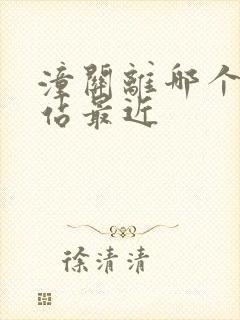 潼關離那个
站最近
徐清清